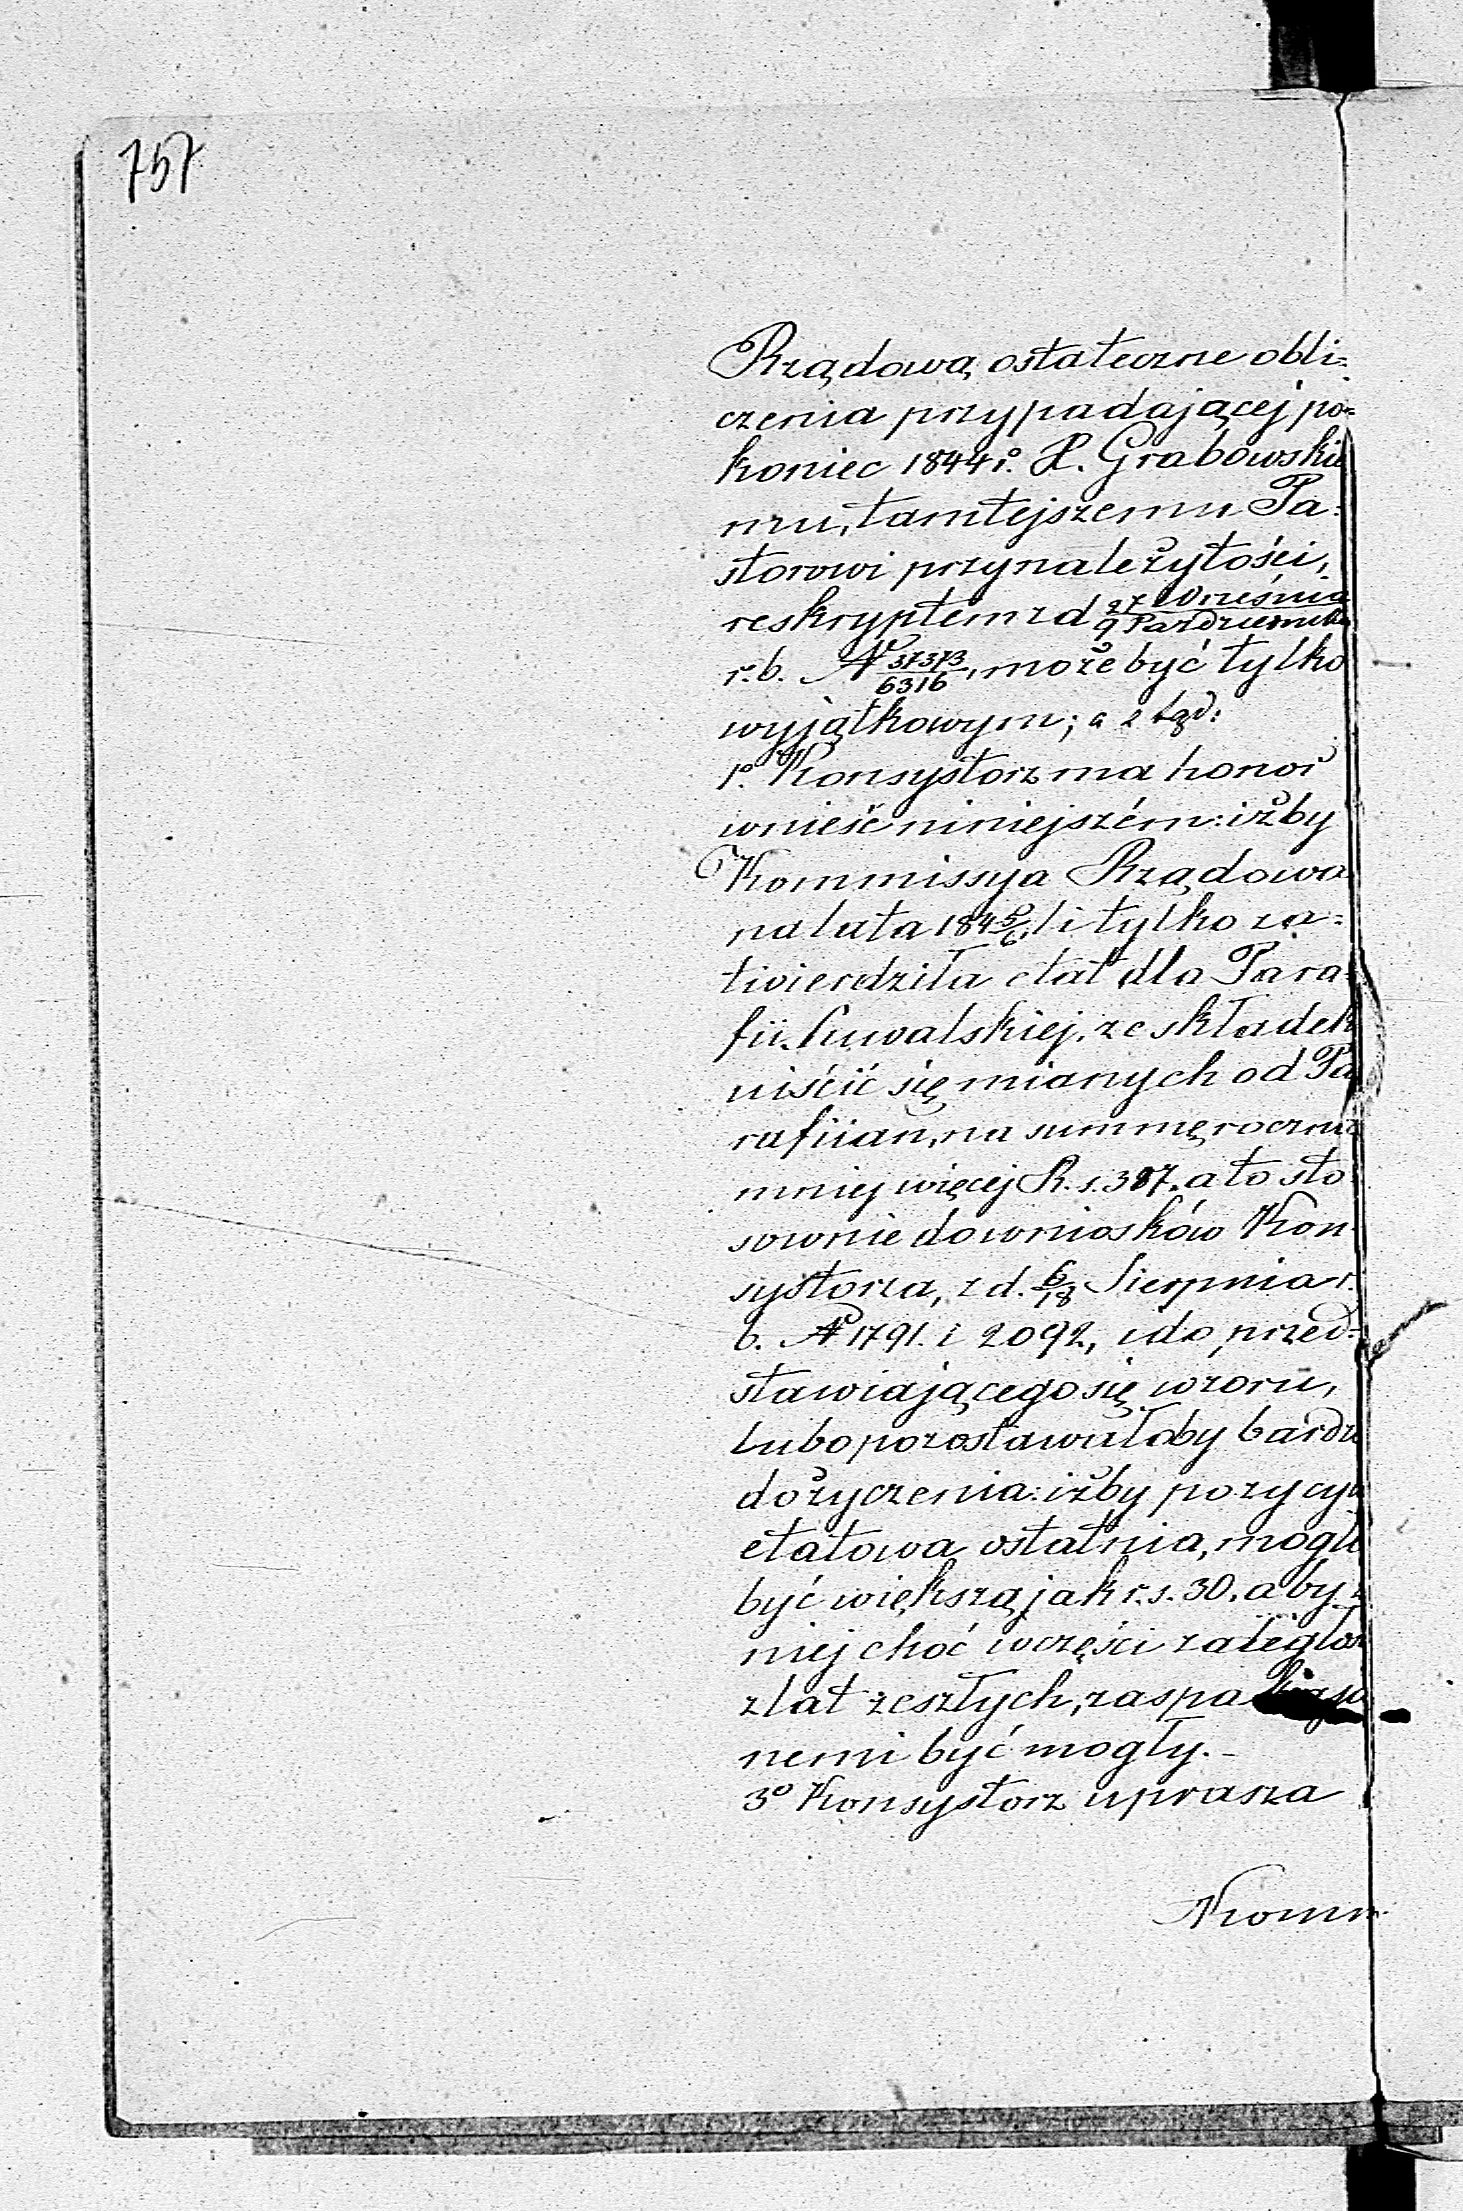 757
Rządową ostateczne obli=
czenia przypadającej po=
koniec 1844 r. X. Grabowskie
mu, tamtejszemu Pa=
storowi przynależytości,
reskryptem z d 27 Września/9 Października
r. b. N 37373/6316, może być tylko
wyjątkowym; a ztąd:
1º. Konsystorz ma honor
wnieść niniejszém: iżby
Kommissya Rządowa
na lata 184 5/6, li tylko za=
twierdziła etat dla Para=
fii Suwalskiej, ze składek
uiścić się mianych od Pa
rafiian, na summę roczną
mniej więcej R. s. 387. a to sto
sownie do wniosków Kon=
systorza, z d. 6/18 Sierpnia r.
b. Nº 1791. i 2092, i do przed=
stawiającego się wzoru,
Lubo pozostawałoby bardzo
do życzenia: iżby pozycya
etatowa ostatnia, mogła
być większą jak r. s. 30. aby z
niej choć w części zaległoś
z lat zeszłych, zaspa
nemi być mogły. –
3º Konsystorz uprasza
Komm